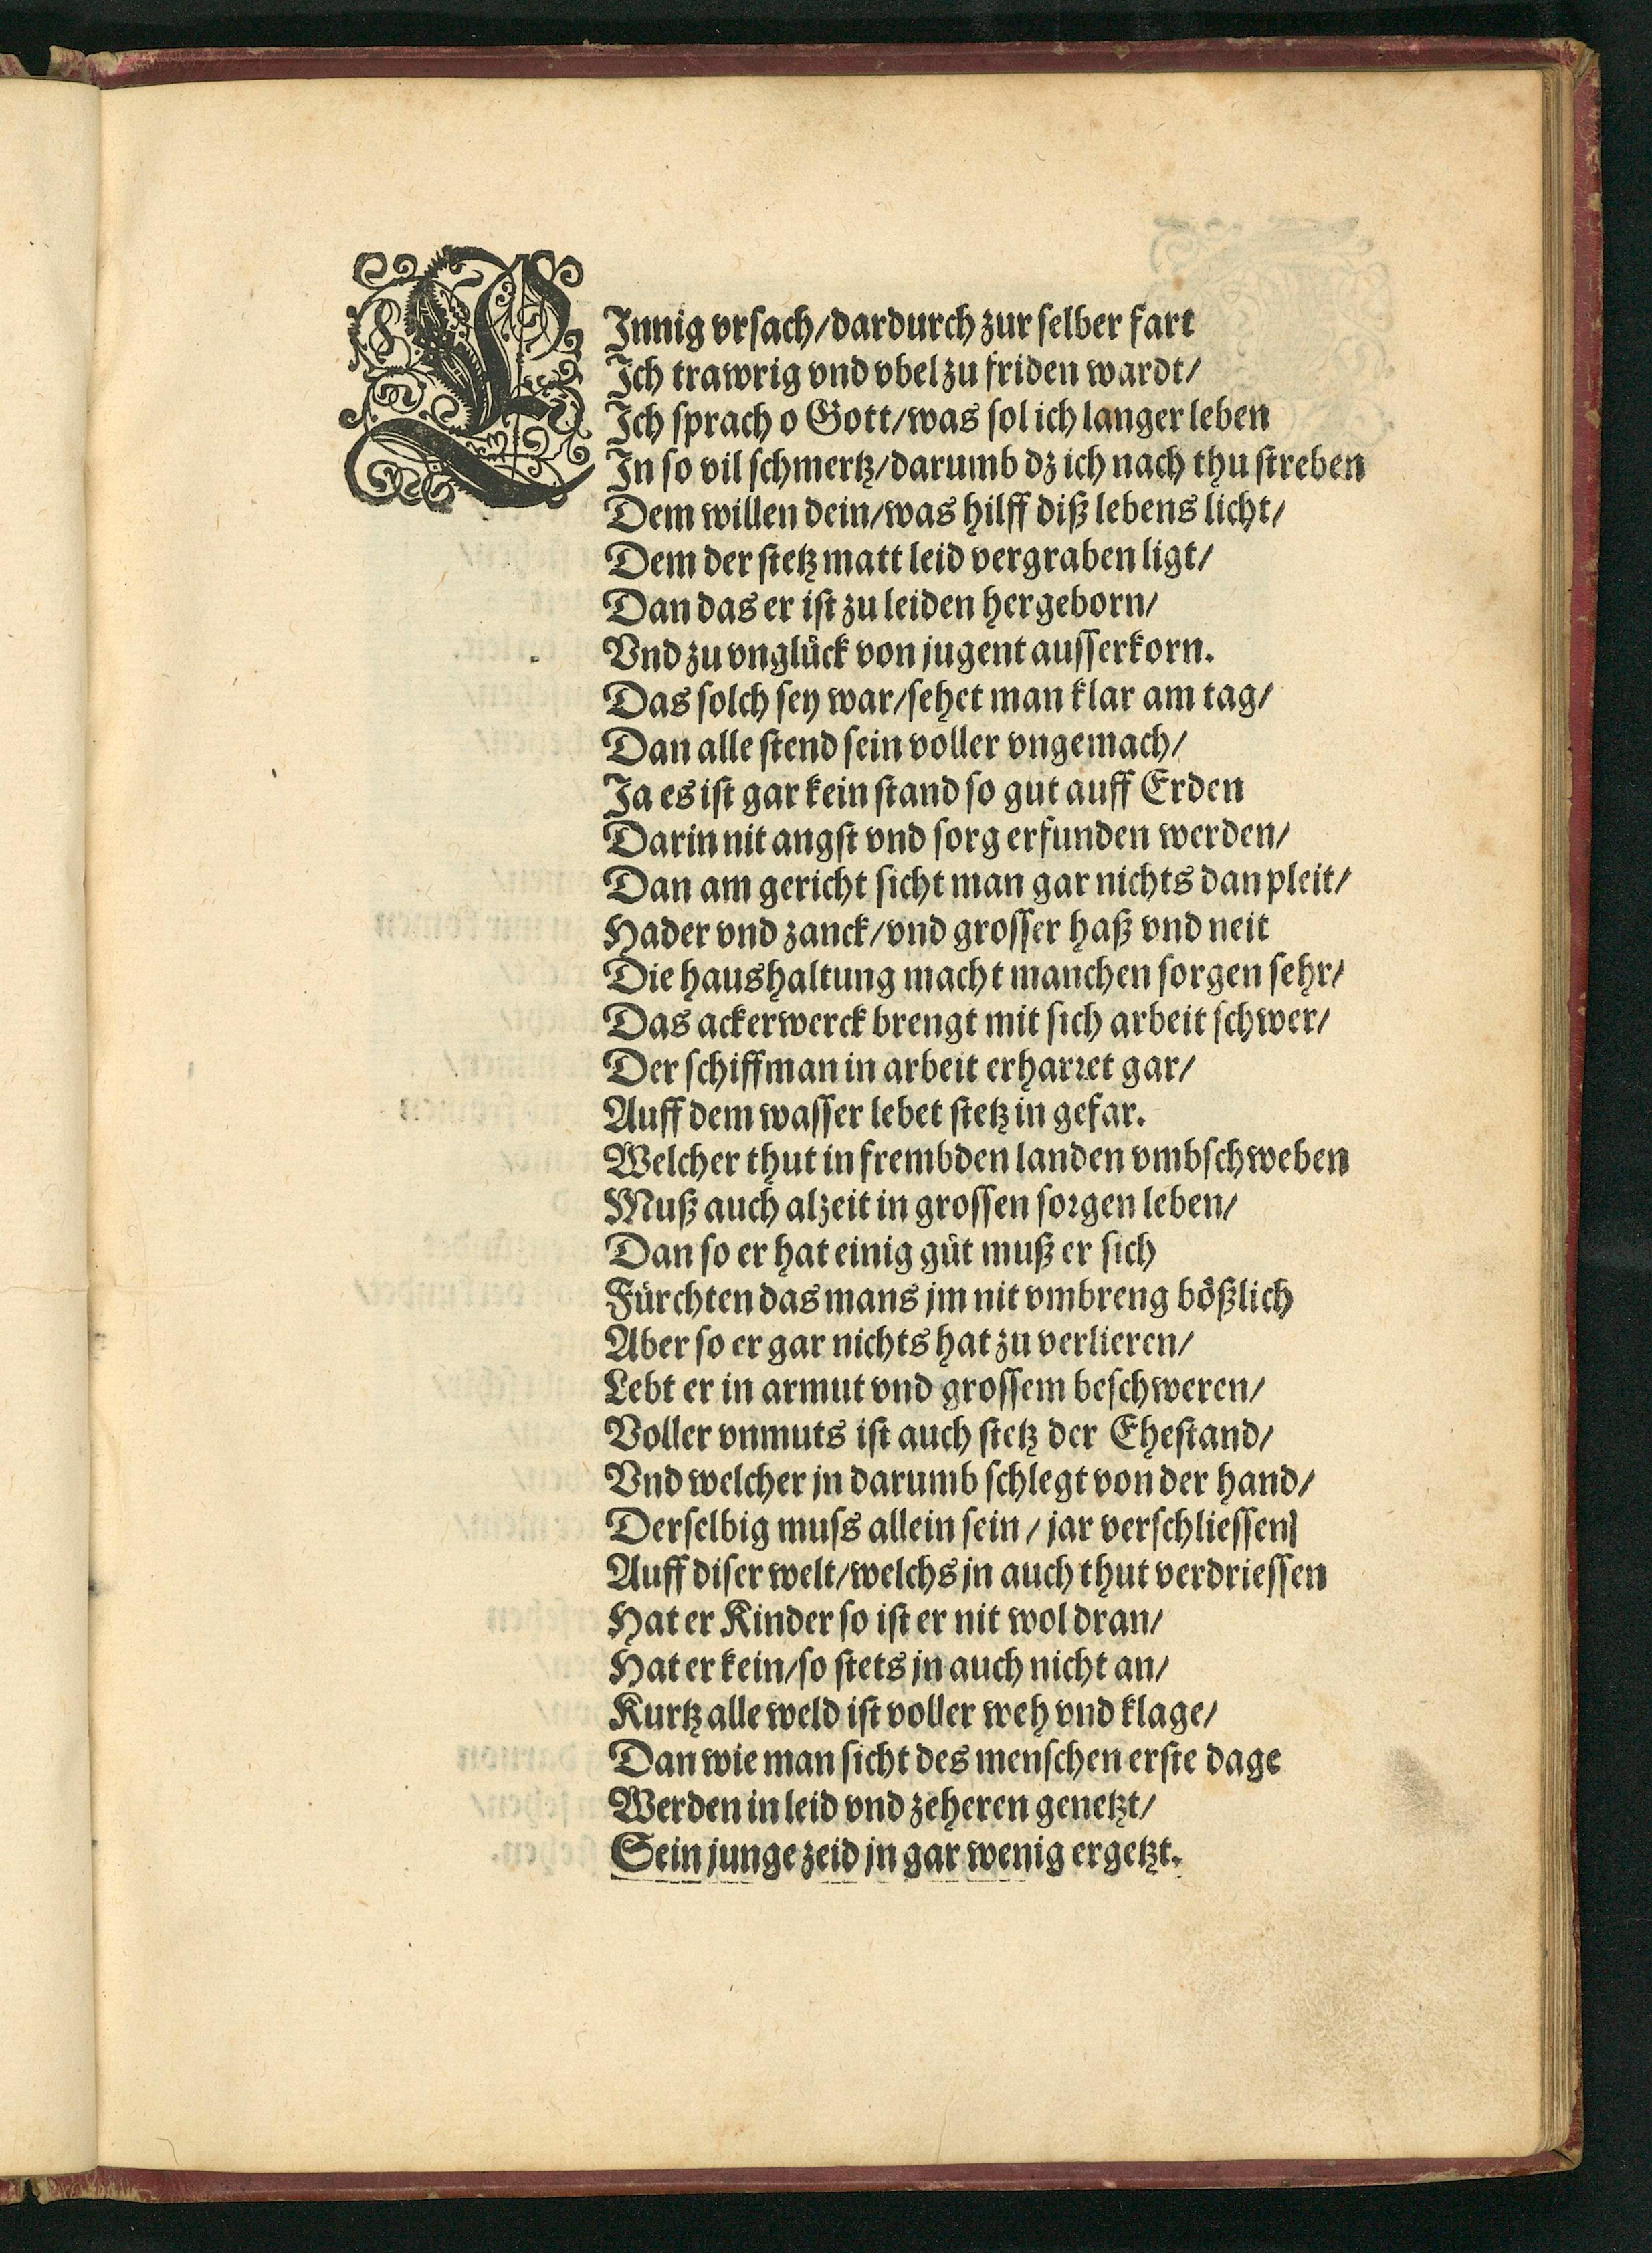 EJnnig vrsach/dardurch zur selber fart
Jch trawrig vnd vbel zu friden wardt/
Jch sprach o Gott/was sol ich langer leben
Jn so vil schmertz/darumb dz ich nach thu streben
Dem willen dein/was hilff diß lebens licht/
Dem der stetz matt leid vergraben ligt/
Dan das er ist zu leiden hergeborn/
Vnd zu vnglůck von jugent ausserkorn.
Das solch sey war/sehet man klar am tag/
Dan alle stend sein voller vngemach/
Ja es ist gar kein stand so gut auff Erden
Darin nit angst vnd sorg erfunden werden/
Dan am gericht sicht man gar nichts dan pleit/
Hader vnd zanck/vnd grosser haß vnd neit
Die haushaltung macht manchen sorgen sehr/
Das ackerwerck brengt mit sich arbeit schwer/
Der schiffman in arbeit erharret gar/
Auff dem wasser lebet stetz in gefar.
Welcher thut in frembden landen vmbschweben
Muß auch alzeit in grossen sorgen leben/
Dan so er hat einig gůt muß er sich
Fürchten das mans jm nit vmbreng bőßlich
Aber so er gar nichts hat zu verlieren/
Lebt er in armut vnd grossem beschweren/
Voller vnmuts ist auch stetz der Ehestand/
Vnd welcher jn darumb schlegt von der hand/
Derselbig muss allein sein / jar verschliessen
Auff diser welt/welchs jn auch thut verdriessen
Hat er Kinder so ist er nit wol dran/
Hat er kein/so stets jn auch nicht an/
Kurtz alle weld ist voller weh vnd klage/
Dan wie man sicht des menschen erste dage
Werden in leid vnd zeheren genetzt/
Sein junge zeid jn gar wenig ergetzt.